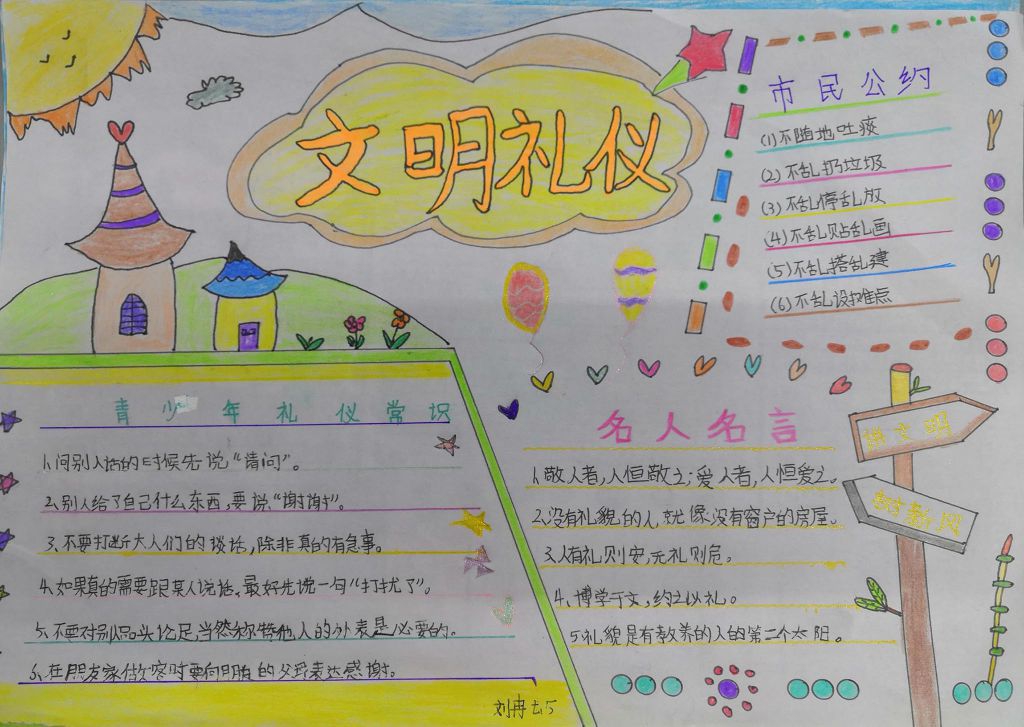 文明礼仪
市民公约
(1)不随地吐痰
(2)不乱扔垃圾
(3)不乱停乱放
(4)不乱贴乱画
(5)不乱搭乱建
(6)不乱设摊点
青少年礼仪常识
1.问别人话的时候先说“请问”。
2.别人给了自己什么东西,要说“谢谢”。
3、不要打断大人们的谈话,除非真的有急事。
4.如果真的需要跟某人说话,最好先说一句“打扰了”。
5.不要对别人品头论足,当然称赞他人的外表是必要的。
6.在朋友家做客时要向朋友的父母表达感谢。
名人名言
1.敬人者,人恒敬之;爱人者,人恒爱之。
2.没有礼貌的人就像没有窗户的房屋。
3.人有礼则安,无礼则危。
4.博学于文,约之以礼。
5.礼貌是有教养的人的第二个太阳。
讲文明
树新风
刘冉 5